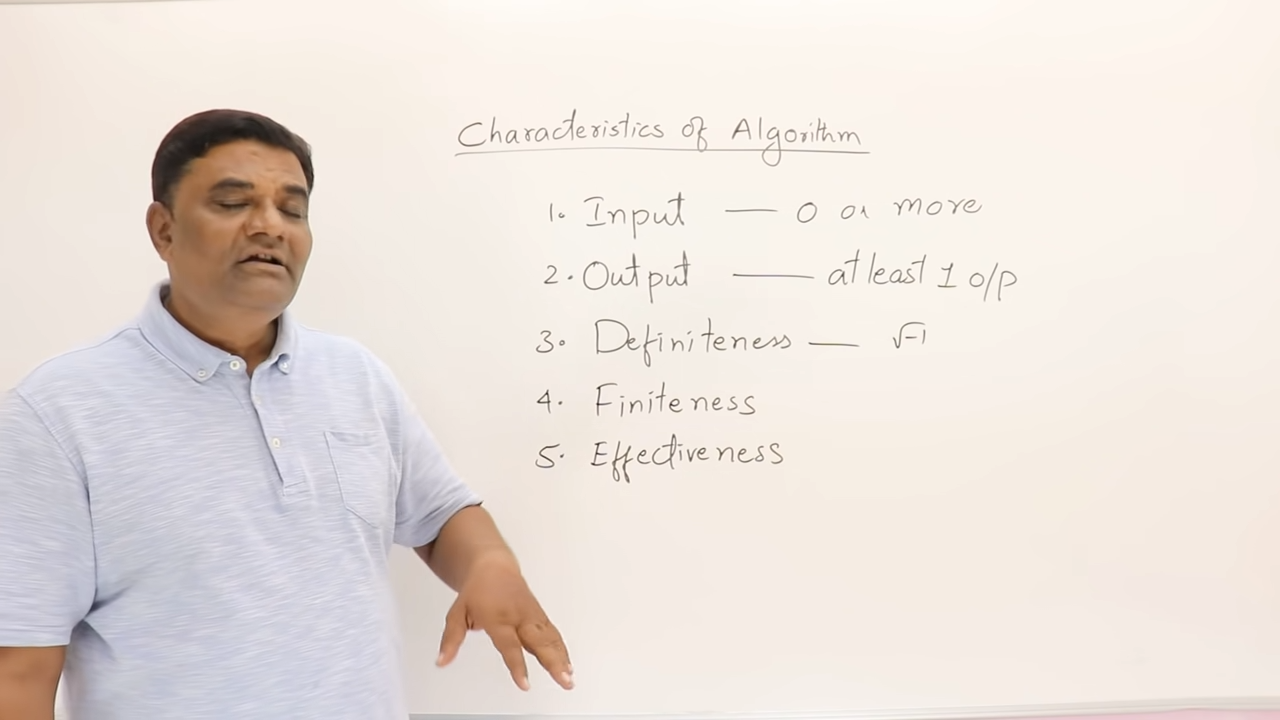 Characteristics of Algorithm
1. Input — 0 or more
2. Output — atleast 1 o/p
3. Definiteness — √-1
4. Finiteness
5. Effectiveness